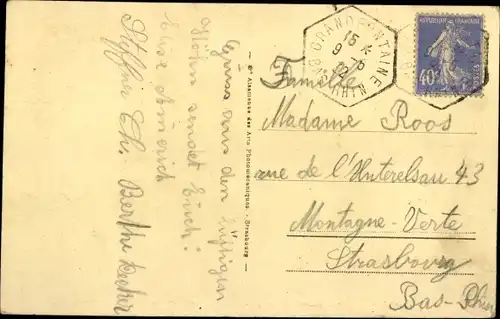 Grüss aus den lustigen
sendet Euch!
Eure Annerich
Steffner Ch. Berthe
Cie Alsacienne des Arts Photomécaniques - Strasbourg
GRANDFONTAINE
15
9 - 5
32
BAS RHIN
REPUBLIQUE FRANÇAISE
40c
Famille
Madame Roos
rue de l'Unterelsau 43
Montagne-Verte
Strasbourg
Bas-Rhin